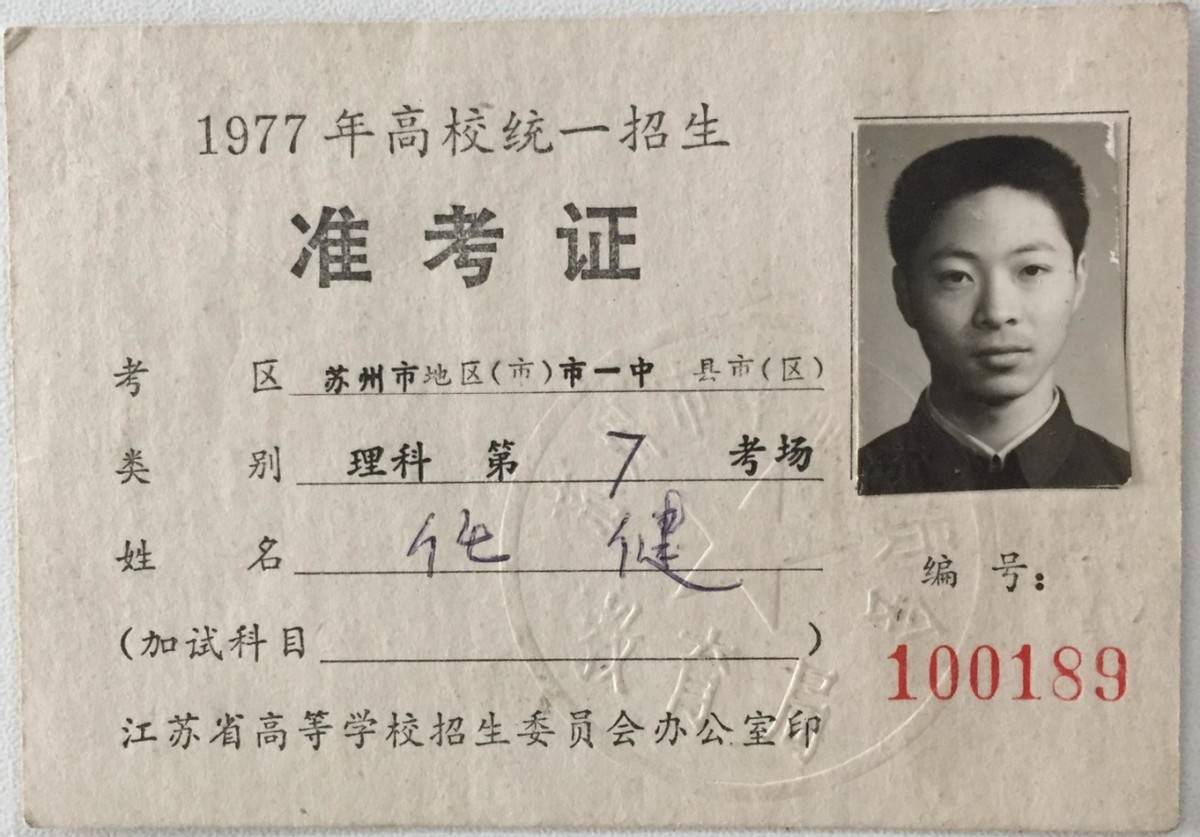 1977年高校统一招生
准考证
考区 苏州市地区(市)市一中 县市(区)
类别 理科 第 7 考场
姓名 健
(加试科目 )
江苏省高等学校招生委员会办公室印
编号:
100189
教育局